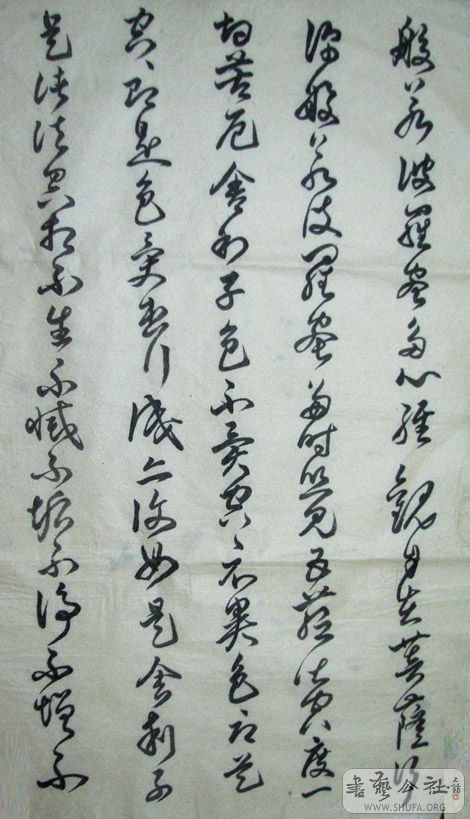 般若波羅蜜多心經觀自在菩薩行
深般若波羅蜜多時照見五蘊皆空度一
切苦厄舍利子色不異空々不異色即是
空々即是色受想行識亦復如是舍利子
是諸法空相不生不滅不垢不淨不增不
書藝公社
WWW.SHUFA.ORG